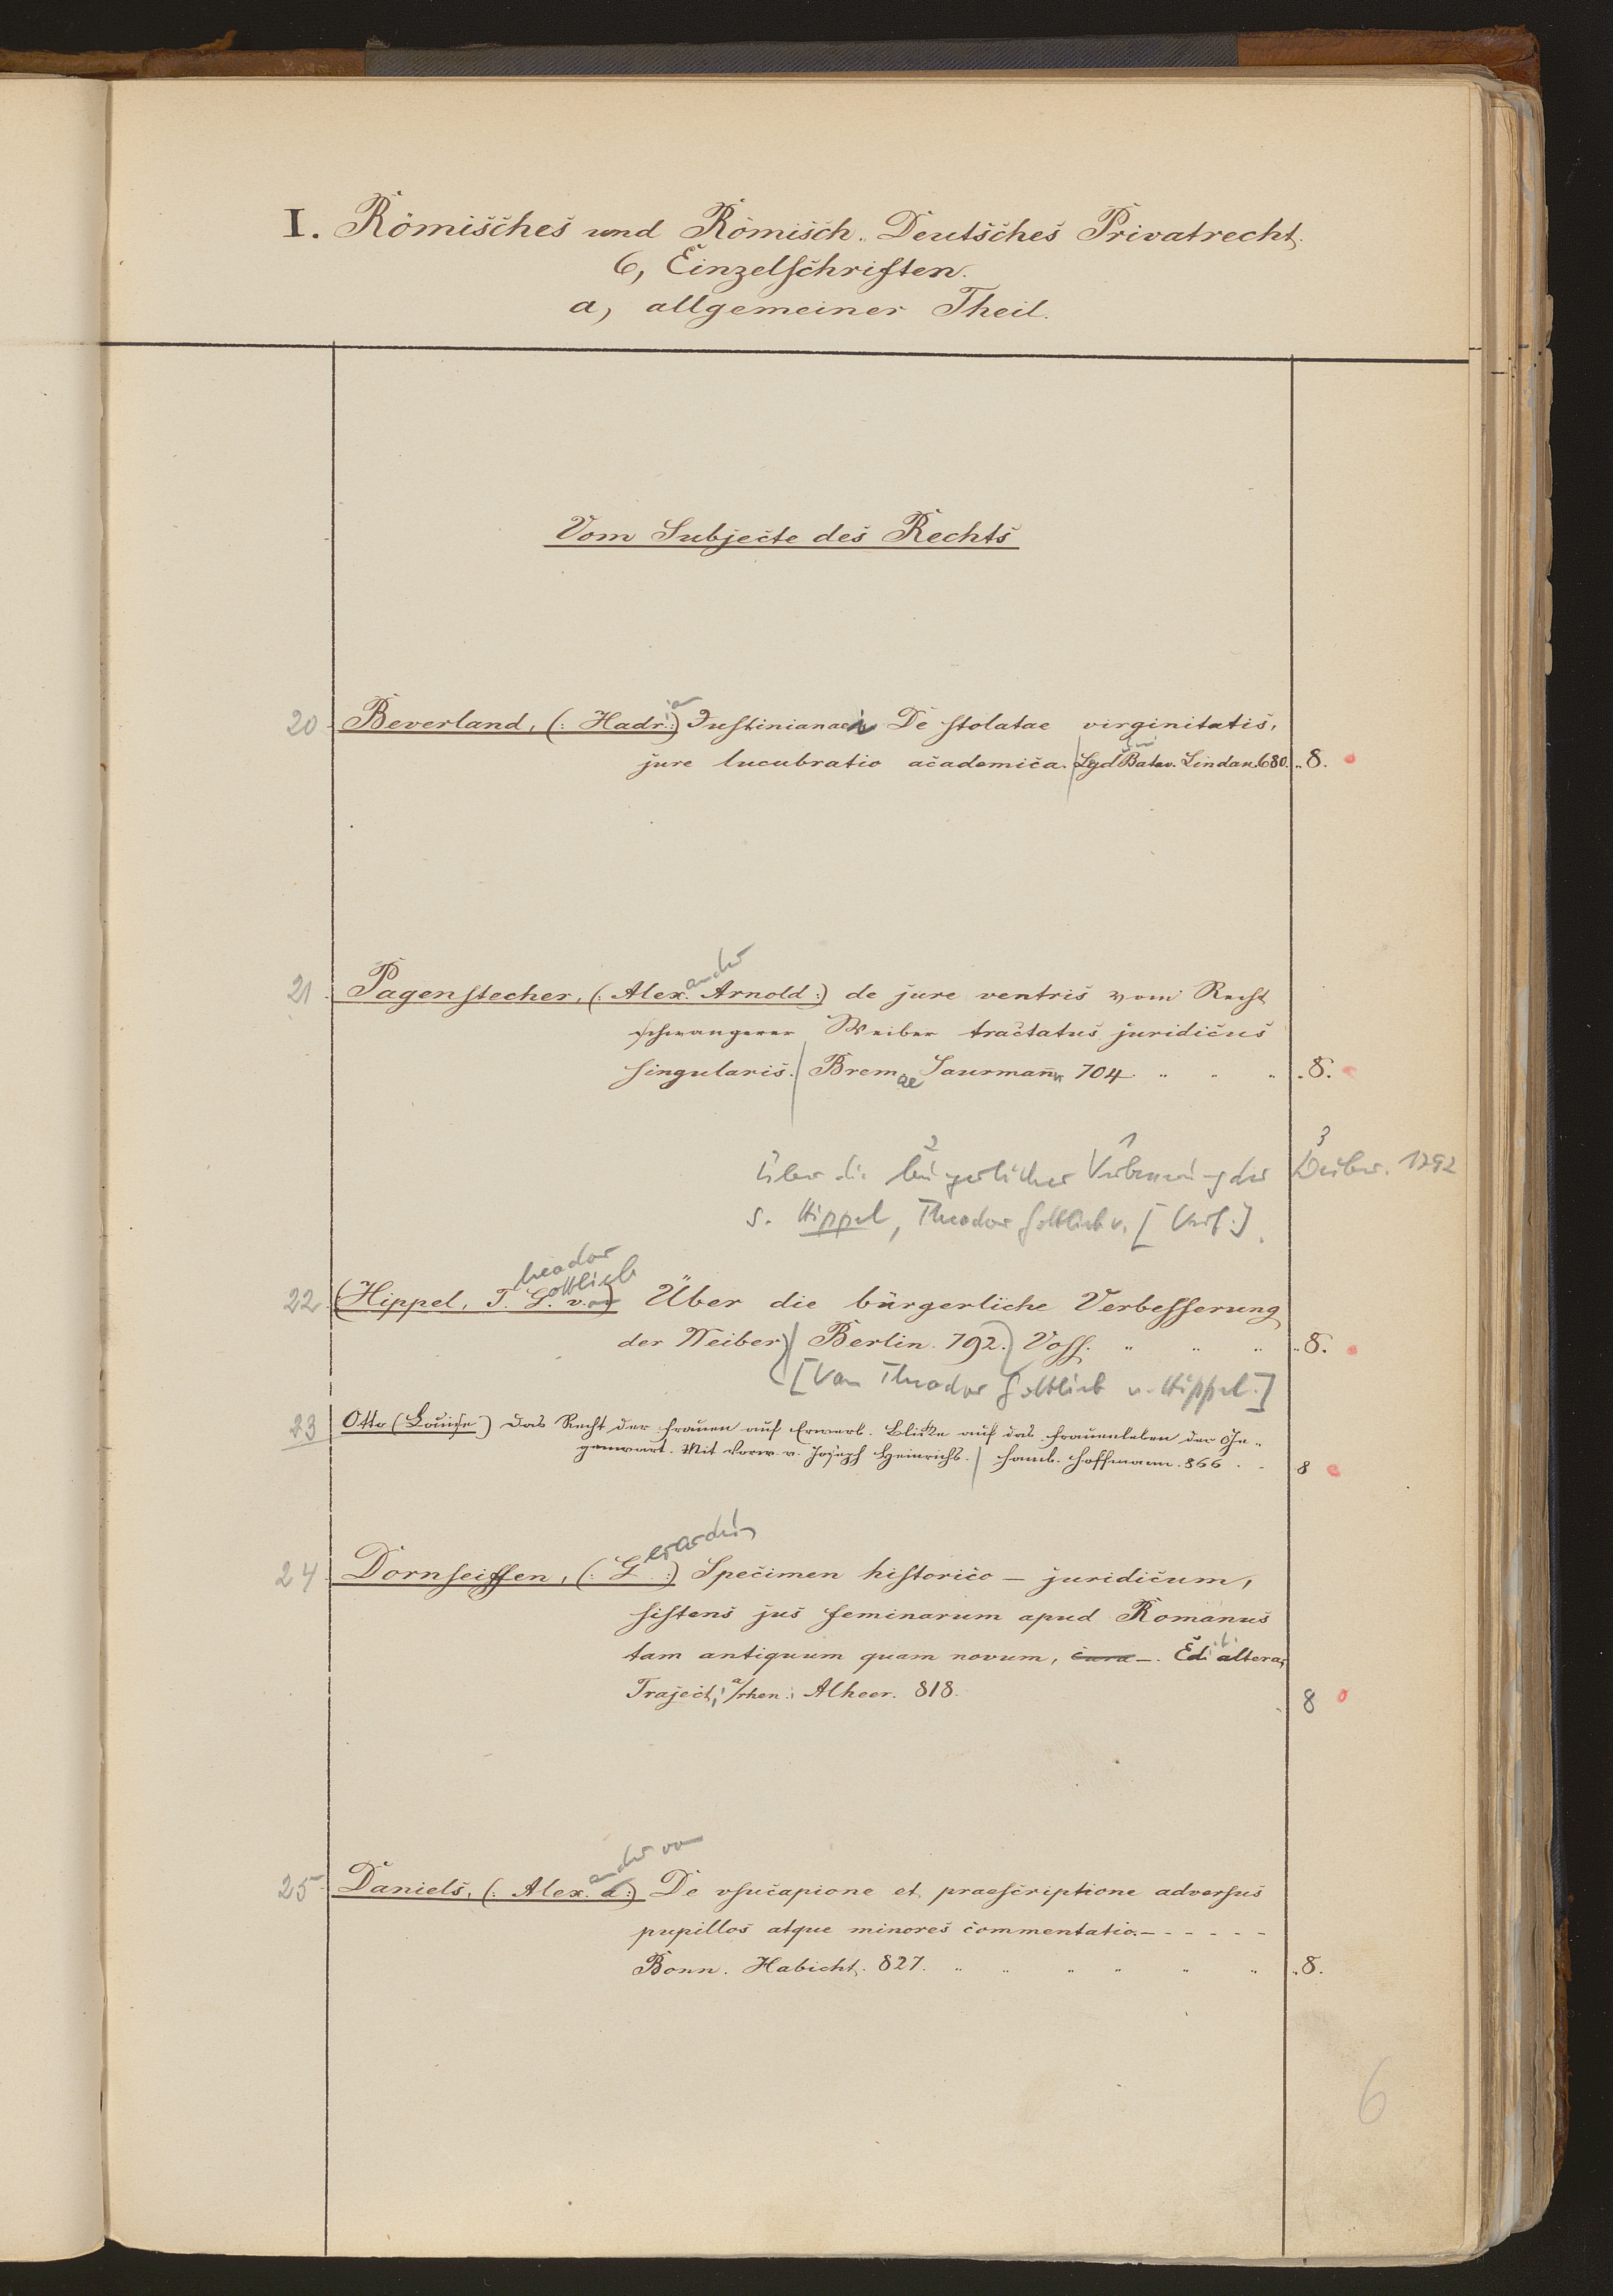 I. Römisches und Römisch-Deutsches Privatrecht.
6, Einzelschriften.
a, allgemeiner Theil.
Vom Subjecte des Rechts
ia
20 Beverland, (: Hadr.:) Justinianaei De stolatae virginitatis,
jure lucubratio academica. Lgd Batav. Lindan. 680. 8.
ander
21 Pagenstecher, (: Alex. Arnold :) de jure ventris vom Recht
schwangerer Weiber tractatus juridicus
singularis. Bremae Saurmann 704 8.
2 1 3
Über die bürgerliche Verbesserung der Weiber. 1792
s. Hippel, Theodor Gottlieb v. [Verf.]
heodor
ottlieb
22 (Hippel, T. G. v.) Über die bürgerliche Verbesserung
der Weiber) Berlin. 792. Voss. 8.
[Von Theodor Gottlieb v. Hippel.]
23 Otto (Louise) Das Recht der Frauen auf Erwerb. Blicke auf das Frauenleben der Ge-
genwart. Mit Vorw. v. Joseph Heinrichs. Hamb. Hoffmann. 866 8
erardus
24 Dornseiffen, (: G :) Specimen historico - juridicum,
sistens jus feminarum apud Romanus
tam antiquum quam novum, cura -. Ed. altera,
Traject. a/rhen.: Alheer. 818. 8
ander von
25 Daniels, (: Alex. a :) De vsucapione et praescriptione adversus
pupillos atque minores commentatio.
Bonn. Habicht. 827. 8.
6